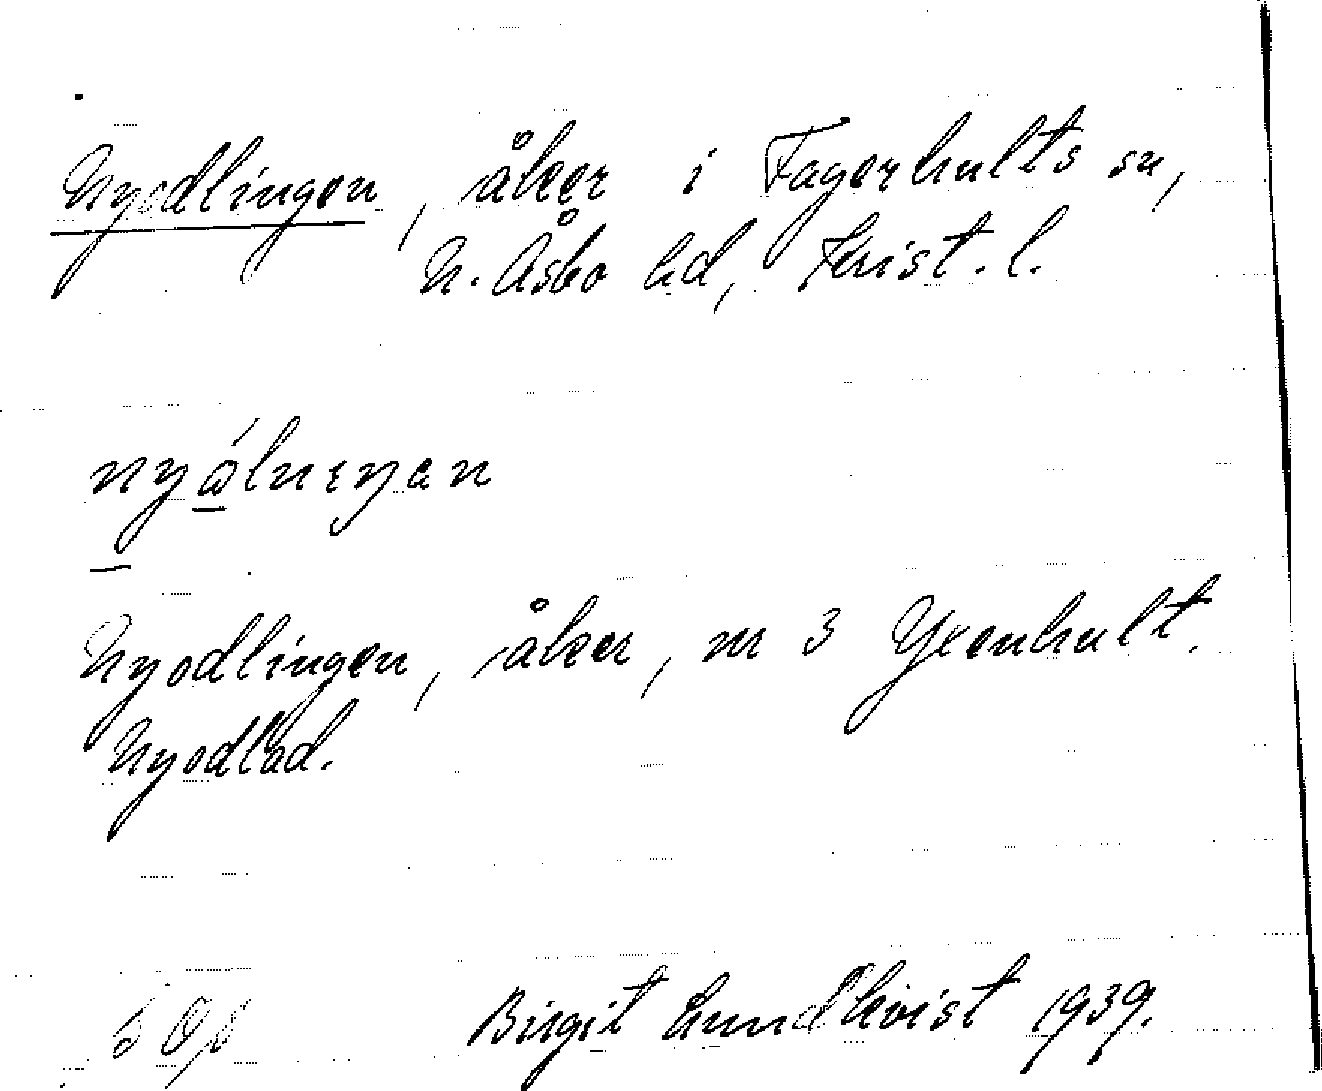 Nyodlingen, åker i Fagerhults sn,
N. Åsbo hd, Krist. l.
Nyodlingen, åker, nr 3 Yxenhult.
Nyodlad.
Birgit Lundkvist 1939.